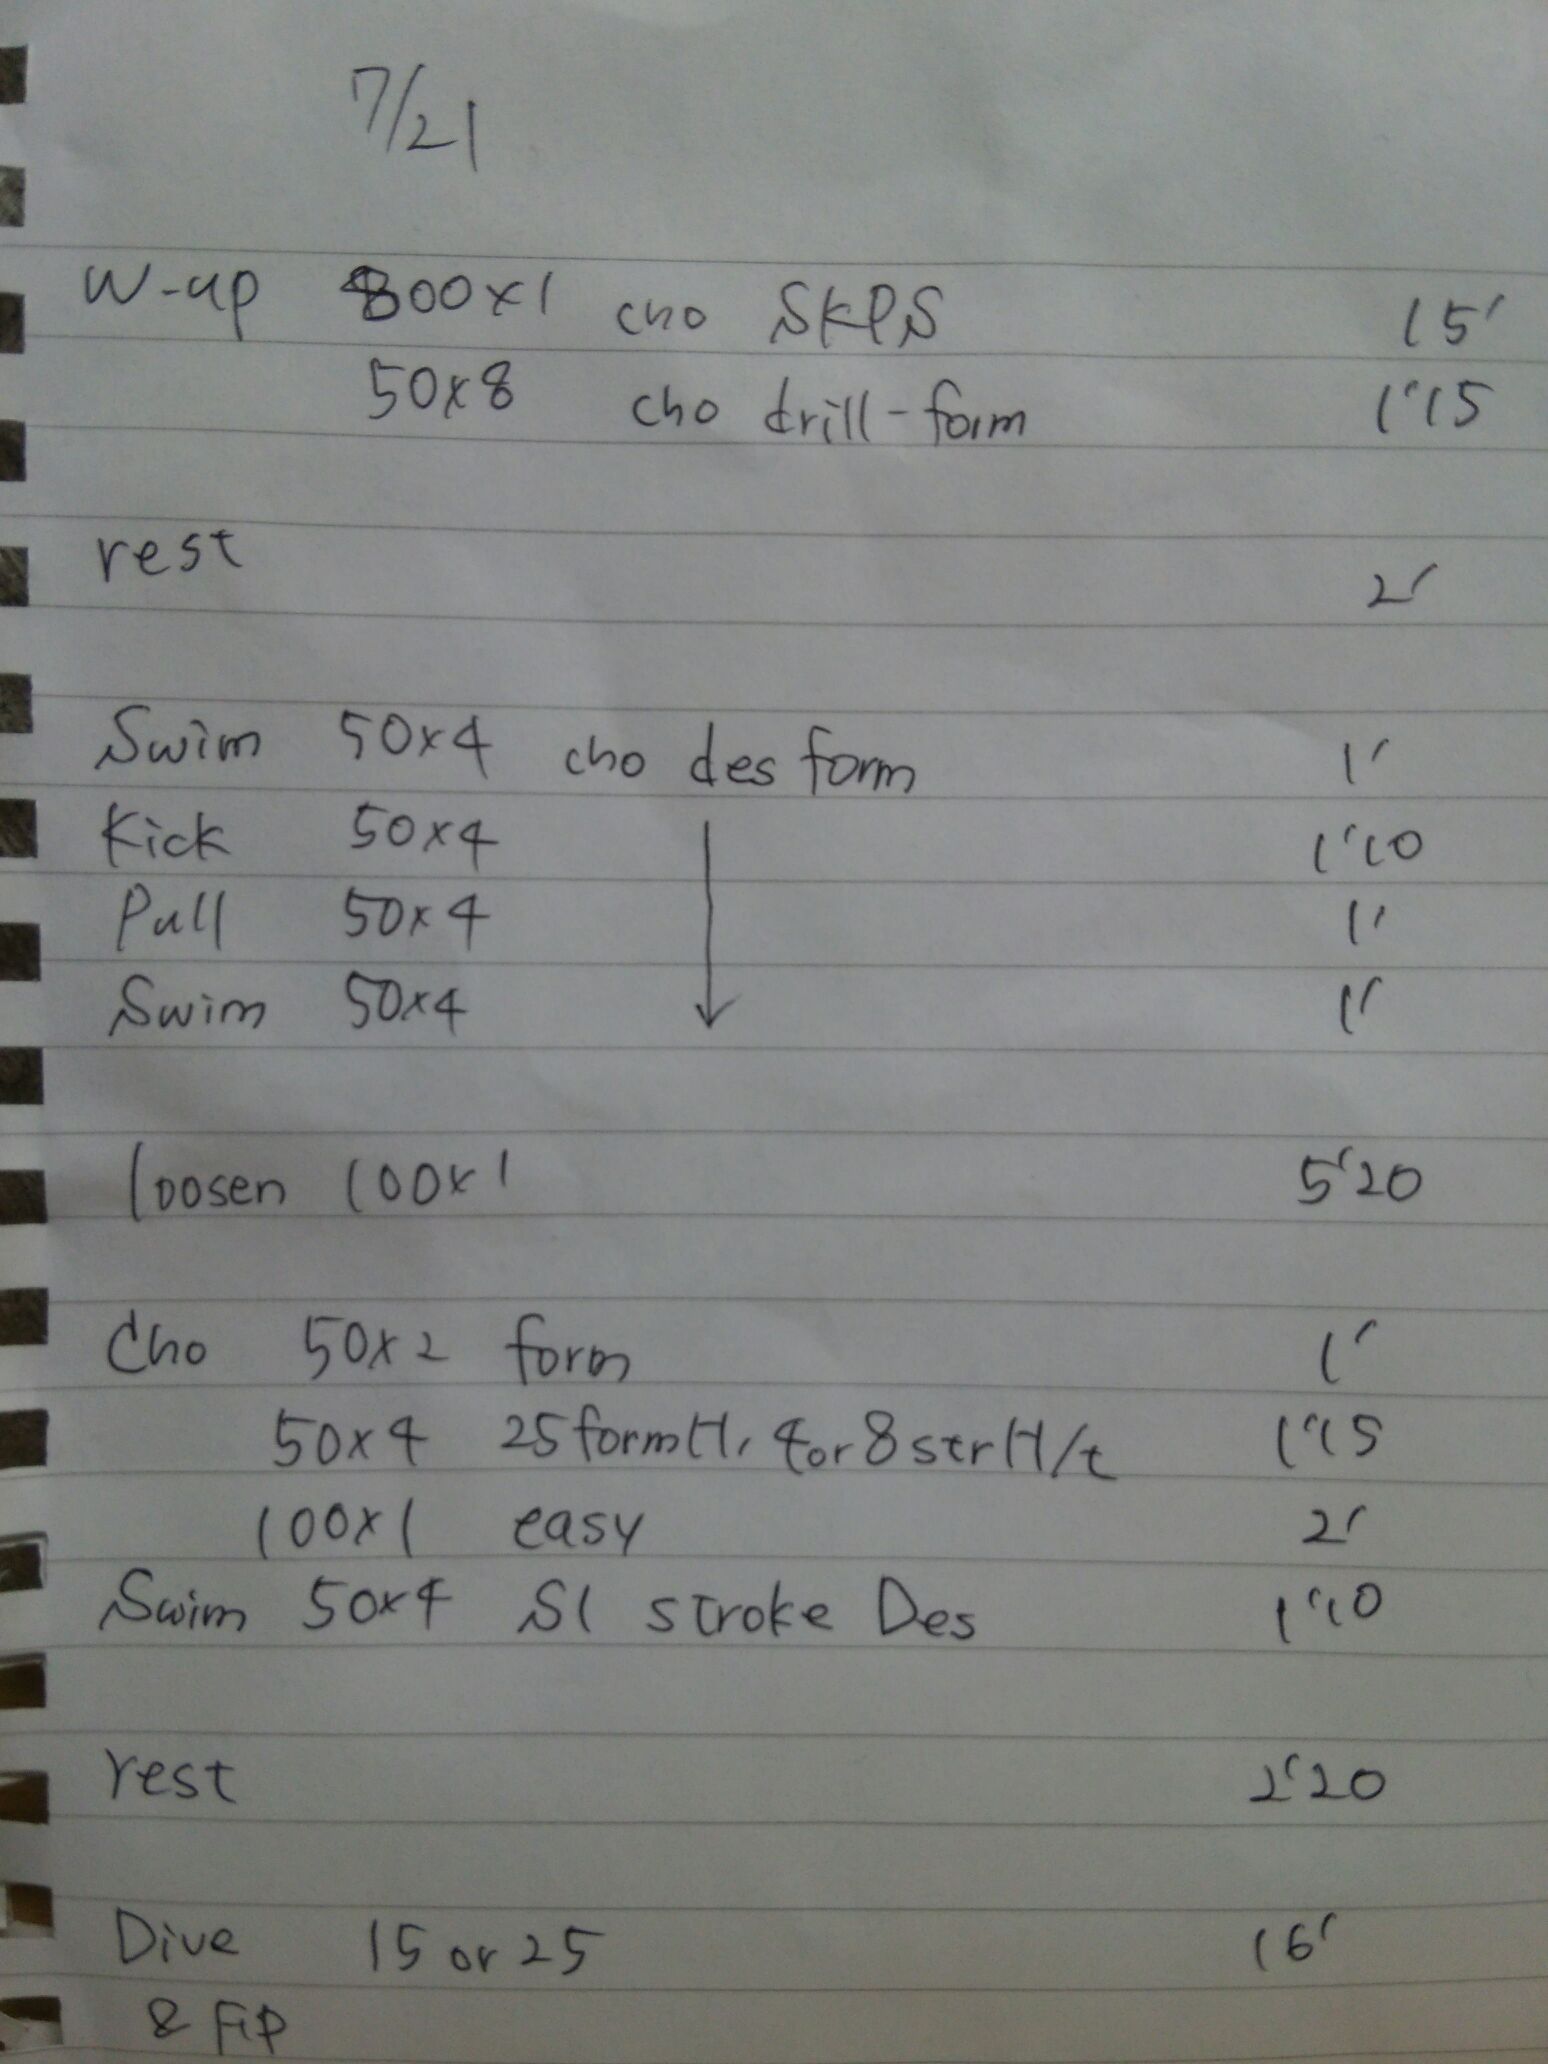 7/21
W-up 800×1 cho SKPS 15'
50×8 cho drill-form 1'15
rest 2'
Swim 50×4 cho des form 1'
Kick 50×4 1'10
Pull 50×4 1'
Swim 50×4 1'
loosen 100×1 5'20
Cho 50×2 form 1'
50×4 25formH, 4or8strH/t 1'15
100×1 easy 2'
Swim 50×4 S1 stroke Des 1'10
rest 2'20
Dive 15 or 25 16'
&